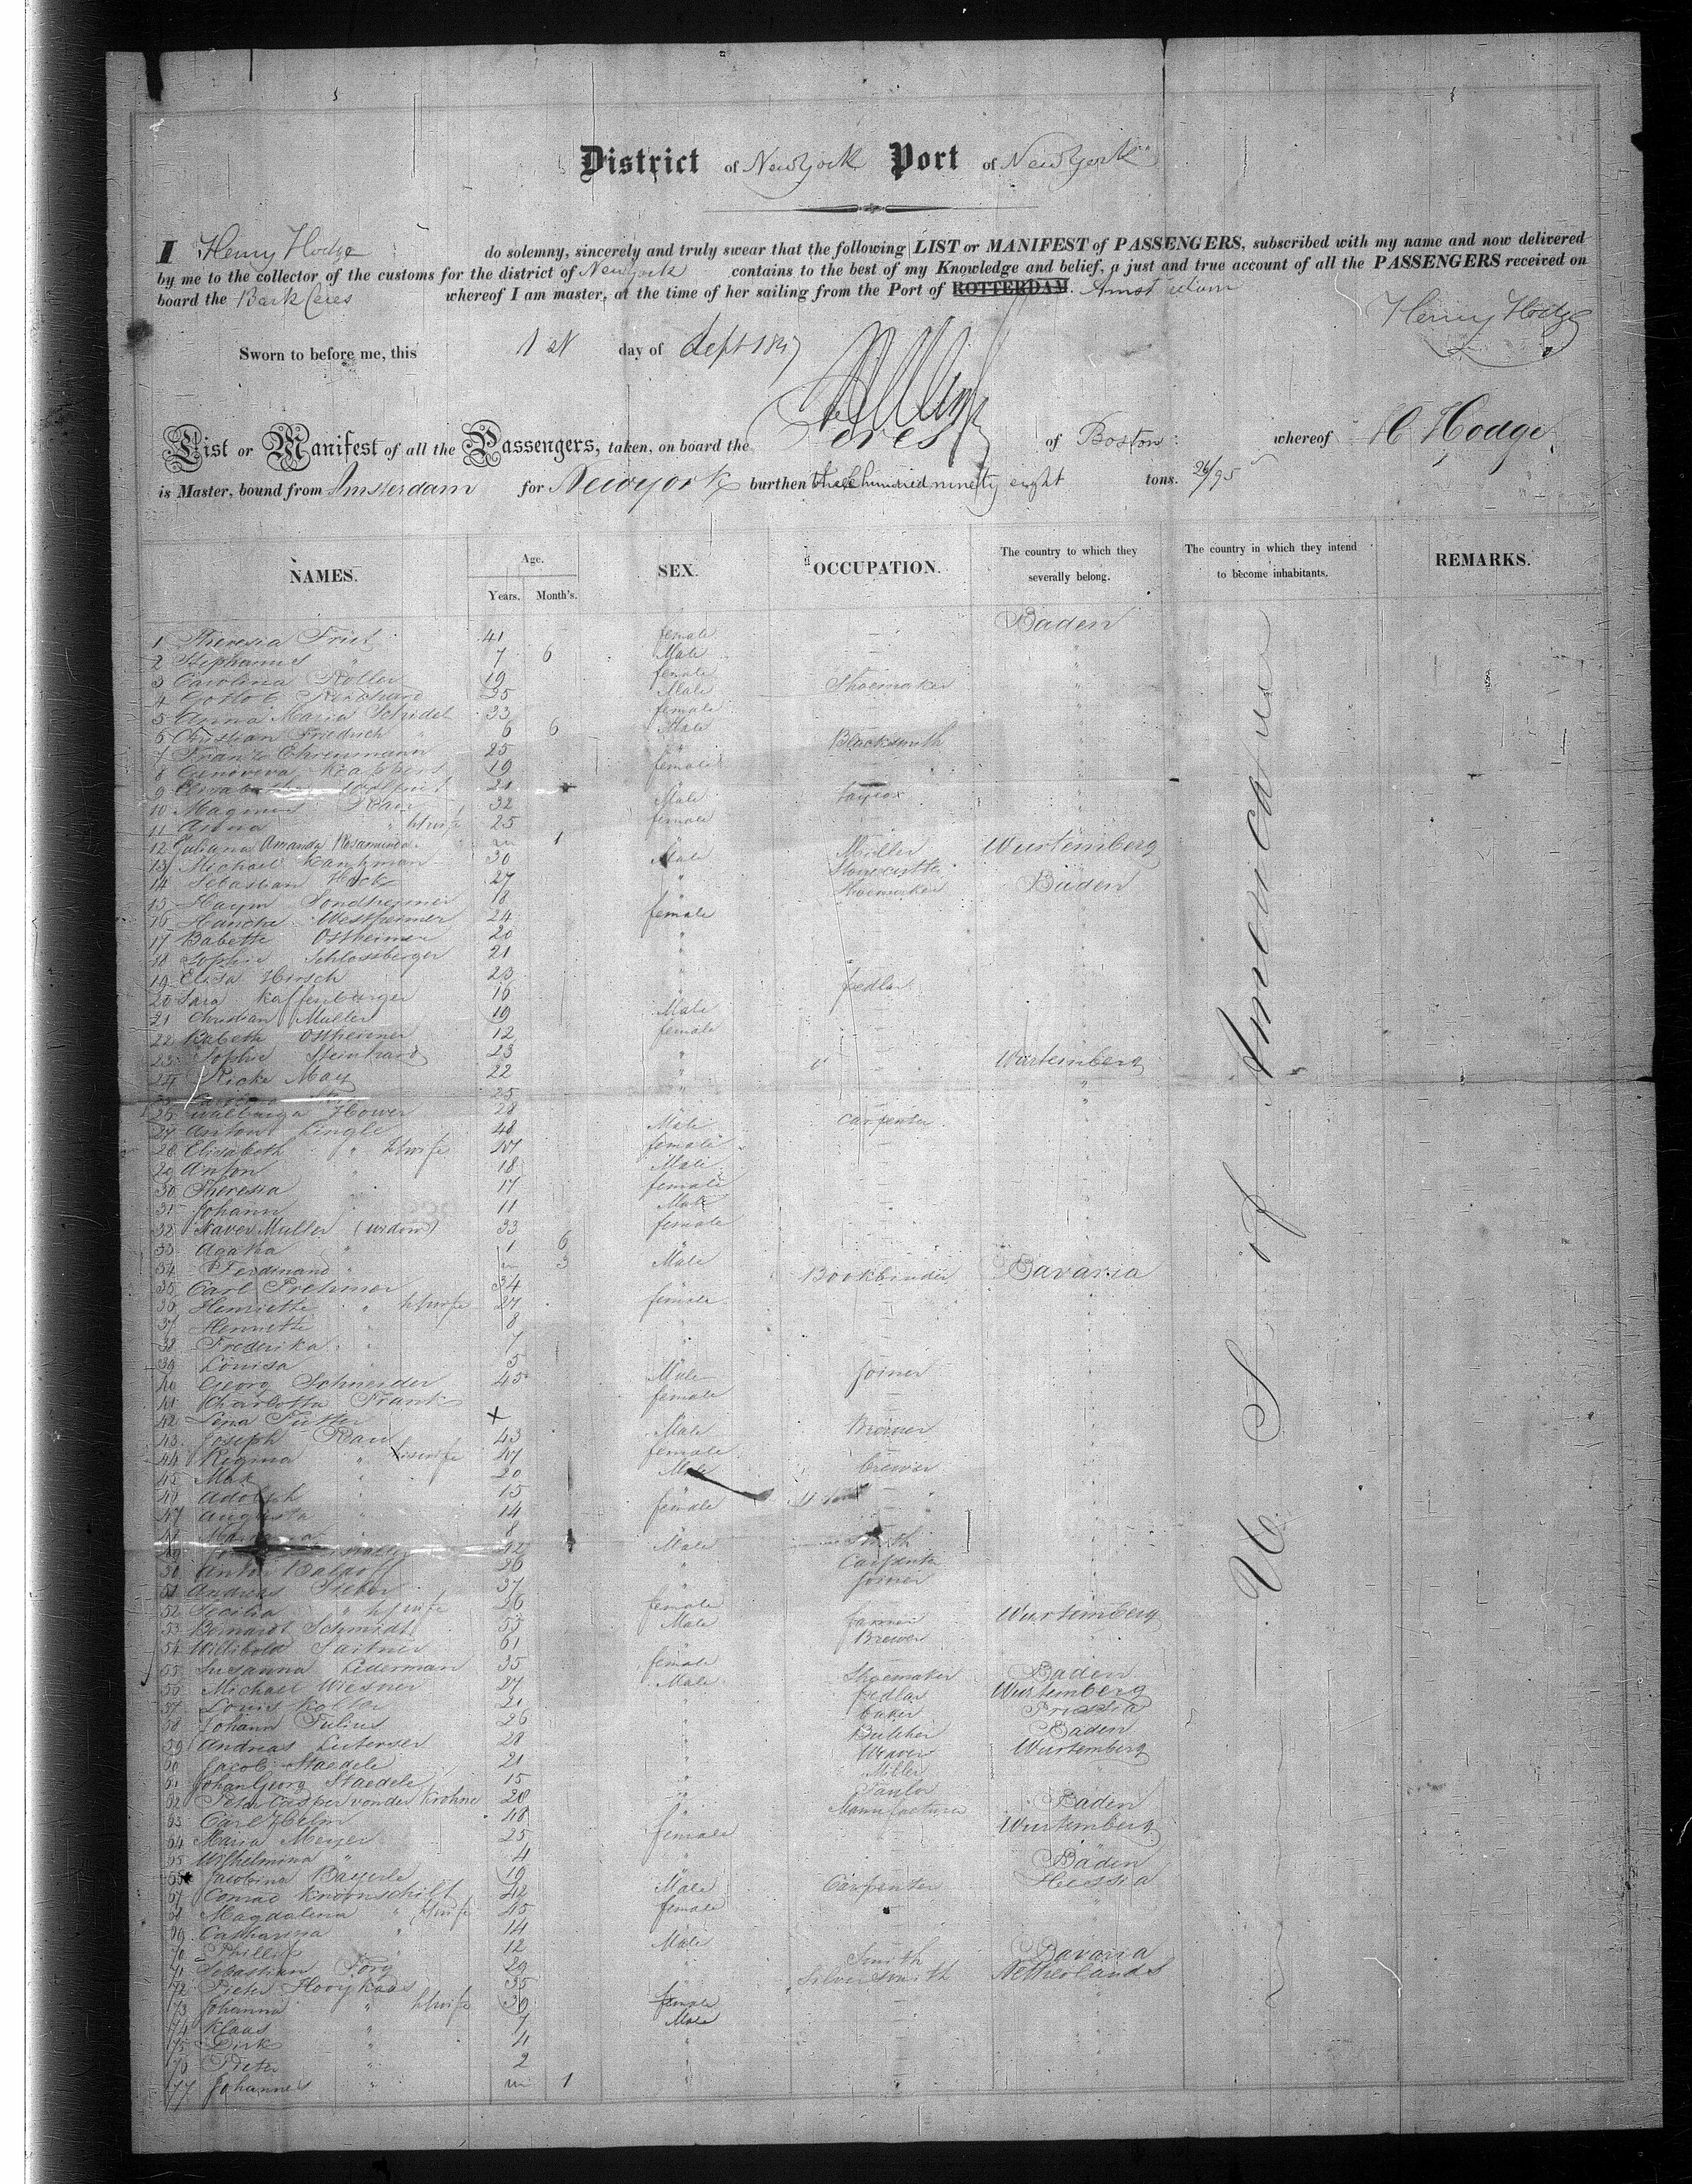 District of New York Port of New York
I Henry Hodge do solemny, sincerely and truly swear that the following LIST or MANIFEST of PASSENGERS, subscribed with my name and now delivered
by me to the collector of the customs for the district of New York contains to the best of my Knowledge and belief, a just and true account of all the PASSENGERS received on
board the Bark Ceres whereof I am master, at the time of her sailing from the Port of ROTTERDAM. Amsterdam
Henry Hodge
Sworn to before me, this 1st day of Sept 1847
List or Manifest of all the Passengers, taken, on board the Ceres of Boston whereof H Hodge
is Master, bound from Amsterdam for New york burthen three hundred ninety eight tons. 26/95
NAMES. Age. Years. Month's. SEX. OCCUPATION. The country to which they severally belong. The country in which they intend to become inhabitants. REMARKS.
U S of America
1 Theresia 41 female Baden
2 Stephanus " 7 6 Male "
3 Carolina Roller 19 female "
4 Gotlob 35 Male Shoemaker "
5 Anna Maria Schidel 33 female "
6 Christian Friedrich " 6 6 Male
7 Franz Ehrenmann 25 " Blacksmith
8 Genoveva 19 female
9 21
10 Magnus Rau 32 Male taylor
11 Anna " his wife 25 female
12 Juliana Amanda Rosamunda " 1
13 Michael 30 Male Miller Wurtemberg
14 Sebastian 27 " Stonecutter
15 Haym Sondheimer 18 " Shoemaker Baden
16 Hancha Westheimer 24 female
17 Babette Ostheimer 20 "
18 Sophie Schlossberger 21 "
19 Elisa Hirsch 23 "
20 Sara Kaffenburger 16 "
21 Christian Muller 19 Male pedlar
22 Babeth Ostheimer 12 female
23 Sophie Steinhard 23 "
24 Ricke May 22 " Wurtemberg
25 25 "
26 Walburga Hower 28 "
27 Anton Lingle 48 Male Carpenter
28 Elisabeth " his wife 47 female
29 Anton " 18 Male
30 Theresia " 17 female
31 Johann " 11 Male
32 Xaver Muller (widow) 33 female
33 Agatha " 1 6 "
34 Ferdinand " 3 Male
35 Carl 34 " Bookbinder Bavaria
36 Henriette " his wife 27 female
37 Henriette " 8 "
38 Frederika " 7 "
39 Louisa " 5 "
40 Georg Schneider 45 Male Joiner
41 Charlotta Frank female
42 Lena X
43 Joseph Rau 43 Male Brewer
44 Regina " his wife 47 female
45 Max " 20 Male brewer
46 Adolph " 15 "
47 Augusta " 14 female
48 " 8 "
49 42 Male Smith
50 Anton 26 " Carpenter
51 Andreas Sieber 37 " Joiner
52 Cecilia " his wife 26 female
53 Bernardt Schmidt 53 Male farmer Wurtemberg
54 Willibold 61 " Brewer "
55 Susanna Lederman 35 female
56 Michael Wiesner 27 Male Shoemaker Baden
57 Louis 21 " pedlar Wurtemberg
58 Johann Julius 26 " baker Prussia
59 Andreas 28 " Butcher Baden
60 Jacob Staedele 21 " Weaver Wurtemberg
61 Johan Georg Staedele 15 " Miller "
62 Peter Casper von der Krohne 28 " Taylor
63 Carl Helm 48 " Manufacturer Baden
64 Maria Meyer 25 female Wurtemberg
65 Wilhelmina " 4 "
66 Jacobina Bayerle 19 " Baden
67 Conrad 42 Male Carpenter Hessia
68 Magdalena " his wife 45 female "
69 Catharina " 14 "
70 Phillip " 12 Male
71 Sebastian 29 " Smith Bavaria
72 Pieter Hooykaas 35 " Silversmith Netherlands
73 Johanna " his wife 39 female "
74 Klaas " 7 Male
75 Dirk " 4 "
76 Pieter " 2 "
77 Johannes " 1 "